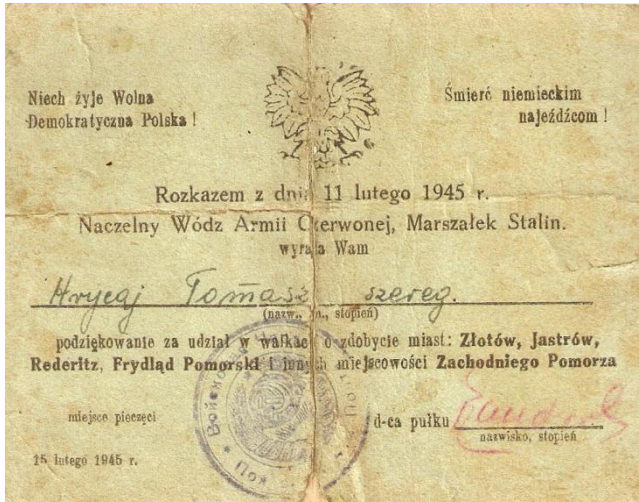 Niech żyje Wolna
Demokratyczna Polska !
Śmierć niemieckim
najeźdźcom !
Rozkazem z dnia 11 lutego 1945 r.
Naczelny Wódz Armii Czerwonej, Marszałek Stalin.
wyraża Wam
Hrycaj Tomasz szereg.
(nazw., im., stopień)
podziękowanie za udział w walkach o zdobycie miast: Złotów, Jastrów,
Rederitz, Frydląd Pomorski i innych miejscowości Zachodniego Pomorza
miejsce pieczęci
d-ca pułku
nazwisko, stopień
15 lutego 1945 r.